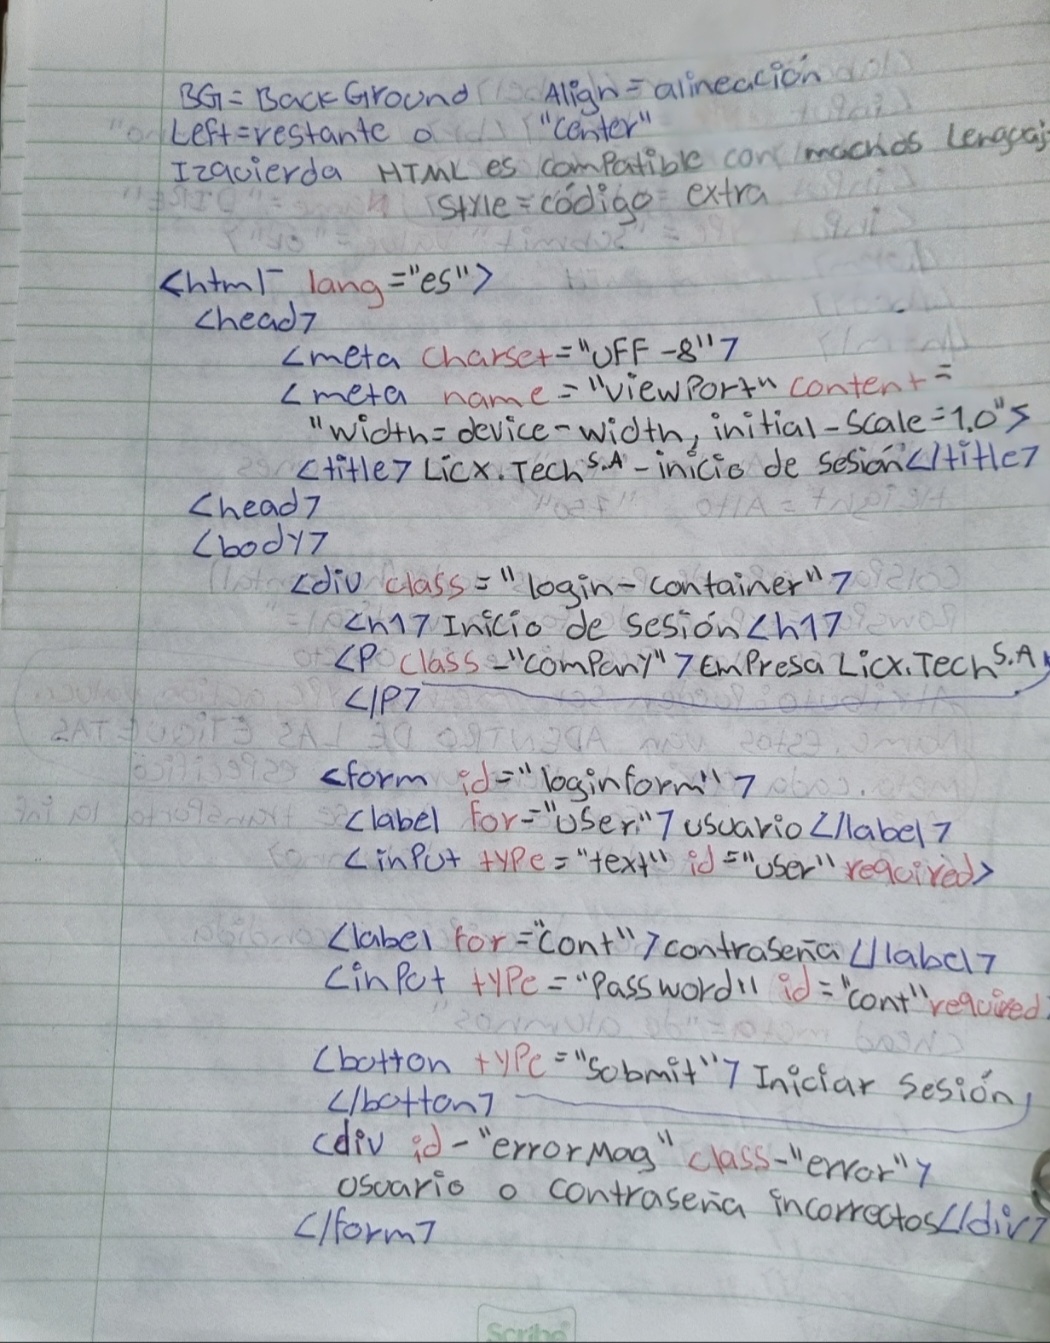 BG = BackGround Align = alineación
Left = restante o "center"
Izquierda HTML es compatible con muchos Lenguaj
Style = código extra
<html lang="es">
<head>
<meta charset="UFF-8">
<meta name="viewPort" content=
"width=device-width, initial-scale=1.0">
<title> Licx.Tech S.A - inicio de sesión</title>
<head>
<body>
<div class="login-container">
<h1> Inicio de sesión<h1>
<P class="comPany"> EmPresa Licx.Tech S.A
</P>
<form id="loginform">
<label for="user"> usuario </label>
<inPut tyPe="text" id="user" required>
<label for="cont"> contraseña </label>
<inPut tyPe="Password" id="cont" required
<botton tyPe="Submit"> Iniciar Sesión
</botton>
<div id="errorMag" class="error">
usuario o contraseña incorrectos</div>
</form>
Scribe